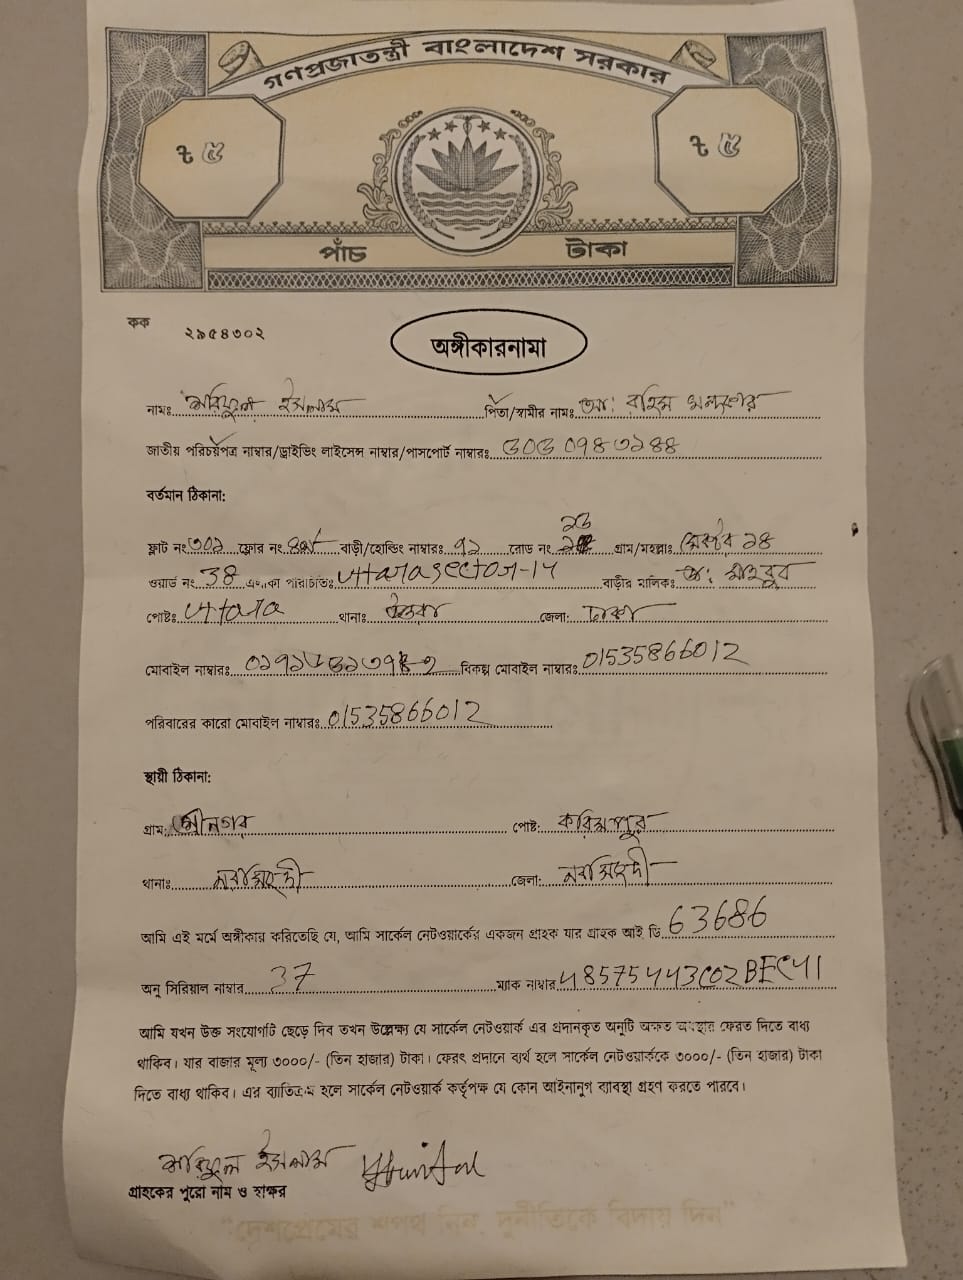 গণপ্রজাতন্ত্রী বাংলাদেশ সরকার
৳ ৫ ৳ ৫
পাঁচ টাকা
কক ২৯৫৪৩০২
অঙ্গীকারনামা
নামঃ আরিফুল ইসলাম পিতা/স্বামীর নামঃ আঃ রহিম
জাতীয় পরিচয়পত্র নাম্বার/ড্রাইভিং লাইসেন্স নাম্বার/পাসপোর্ট নাম্বারঃ
বর্তমান ঠিকানা:
ফ্লাট নং ৩০১ ফ্লোর নং বাড়ী/হোল্ডিং নাম্বারঃ ৭১ রোড নং গ্রাম/মহল্লাঃ সেক্টর ১৪
ওয়ার্ড নং 38 এলাকা পরিচিতিঃ Uttara sector-14 বাড়ীর মালিকঃ মাহবুব
পোষ্টঃ Uttara থানাঃ উত্তরা জেলা: ঢাকা
মোবাইল নাম্বারঃ বিকল্প মোবাইল নাম্বারঃ 01535866012
পরিবারের কারো মোবাইল নাম্বারঃ 01535866012
স্থায়ী ঠিকানা:
গ্রাম: শ্রীনগর পোষ্ট: করিমপুর
থানাঃ নরসিংদী জেলা: নরসিংদী
আমি এই মর্মে অঙ্গীকার করিতেছি যে, আমি সার্কেল নেটওয়ার্কের একজন গ্রাহক যার গ্রাহক আই ডি 63686
অনু সিরিয়াল নাম্বার 37 ম্যাক নাম্বার 48575443C02BEC41
আমি যখন উক্ত সংযোগটি ছেড়ে দিব তখন উল্লেখ্য যে সার্কেল নেটওয়ার্ক এর প্রদানকৃত অনুটি অক্ষত অবস্থায় ফেরত দিতে বাধ্য
থাকিব। যার বাজার মূল্য ৩০০০/- (তিন হাজার) টাকা। ফেরৎ প্রদানে ব্যর্থ হলে সার্কেল নেটওয়ার্ককে ৩০০০/- (তিন হাজার) টাকা
দিতে বাধ্য থাকিব। এর ব্যতিক্রম হলে সার্কেল নেটওয়ার্ক কর্তৃপক্ষ যে কোন আইনানুগ ব্যবস্থা গ্রহণ করতে পারবে।
আরিফুল ইসলাম
গ্রাহকের পুরো নাম ও স্বাক্ষর
"দেশপ্রেমের শপথ নিন, দুর্নীতিকে বিদায় দিন"